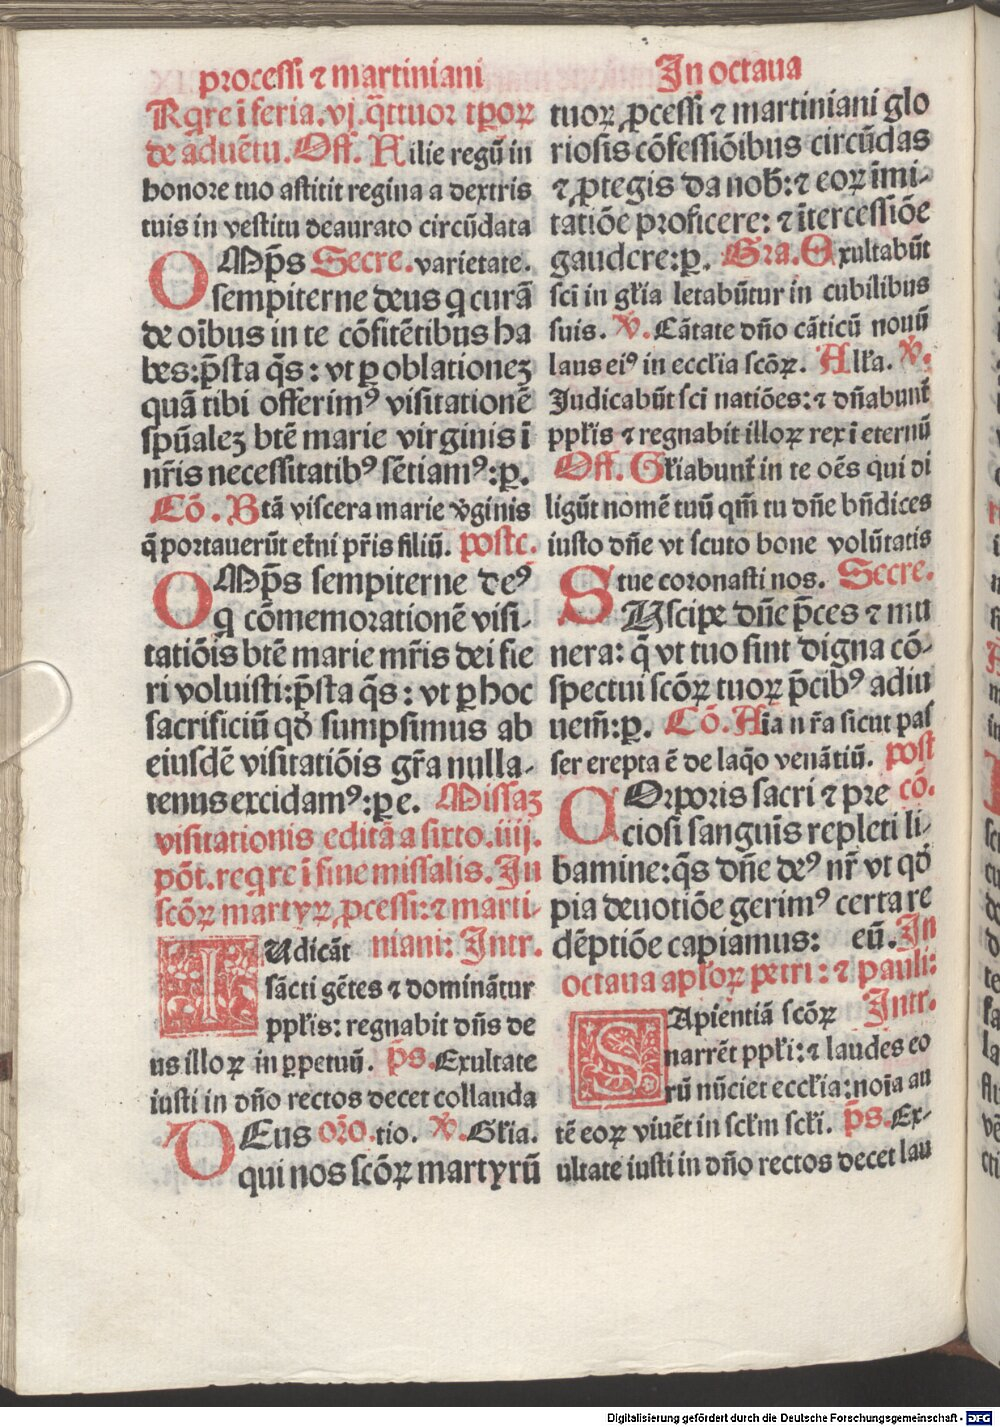 processi ⁊ martiniani
Rq̄re ī feria.vj.q̄ttuor tp̄oꝝ
de aduētu. Off. Filie regū in
honore tuo astitit regina a dextris
tuis in vestitu deaurato circūdata
OMp̄s Secre. varietate.
sempiterne deus q curā
de oībus in te cōfitētibus ha
bes:p̄sta q̄s: vt ꝑ oblationeꝫ
quā tibi offerimꝰ visitationē
spūaleꝫ btē marie virginis ī
nr̄is necessitatibꝰ sētiamꝰ:ꝑ.
Cō. Btā viscera marie v̄ginis
q̄ portauerūt etn̄i pr̄is filiū. postc.
OMp̄s sempiterne deꝰ
q cōmemorationē visi-
tatiōis btē marie mr̄is dei fie
ri voluisti:p̄sta q̄s: vt ꝑ hoc
sacrificiū qd̄ sumpsimus ab
eiusdē visitatiōis gr̄a nulla-
tenus excidamꝰ:ꝑ e. Missaꝫ
visitationis editā a sixto.iiij.
pōt.req̄re ī fine missalis. In
scōꝝ martyꝝ ꝓcessi:⁊ marti-
IUdicāt niani: Intr.
sācti gētes ⁊ dominātur
ppl̄is: regnabit dn̄s de
us illoꝝ in ꝑpetuū. p̄s. Exultate
iusti in dn̄o rectos decet collauda
DEus orō.tio. ℣. Gl̄ia.
qui nos scōꝝ martyrū
In octaua
tuoꝝ ꝓcessi ⁊ martiniani glo
riosis cōfessiōibus circūdas
⁊ ꝓtegis da nob̄:⁊ eoꝝ īmi-
tatiōe proficere: ⁊ ītercessiōe
gaudere:ꝑ. Gra. Exultabūt
sci̅ in gl̄ia letabūtur in cubilibus
suis. ℣. Cātate dn̄o cāticū nouū
laus eiꝰ in eccl̄ia scōꝝ. All̄a. ℣.
Judicabūt sci̅ natiōes:⁊ dn̄abunt̄
ppl̄is ⁊ regnabit illoꝝ rex ī eternū
Off. Gl̄iabunt̄ in te oēs qui di
ligūt nomē tuū qm̄ tu dn̄e bn̄dices
iusto dn̄e vt scuto bone volūtatis
tue coronasti nos. Secre.
SUscipe dn̄e p̄ces ⁊ mu
nera: q̄ vt tuo sint digna cō-
spectui scōꝝ tuoꝝ p̄cibꝰ adiu
uem̄:ꝑ. Cō. Aīa nr̄a sicut pas
ser erepta ē de laq̄o venātiū. post
COrporis sacri ⁊ pre cō.
ciosi sanguīs repleti li-
bamine:q̄s dn̄e deꝰ nr̄ vt qd̄
pia deuotiōe gerimꝰ certa re
dēptiōe capiamus: eū. In
octaua apl̄oꝝ petri: ⁊ pauli:
SApientiā scōꝝ Intr.
narrēt ppl̄i:⁊ laudes eo
rū nūciet eccl̄ia:noīa au
tē eoꝝ viuēt in scl̄m scl̄i. p̄s. Ex-
ultate iusti in dn̄o rectos decet lau
Digitalisierung gefördert durch die Deutsche Forschungsgemeinschaft - DFG